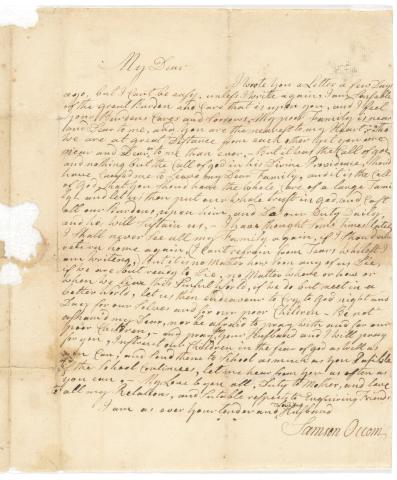 My Dear
I wrote you a Letter a few Days
ago, but I cant be easy, unless I write again, I am Sensible
of the great Burden and Care that is upon you, and I feel
your Burdens Cares and Sorrows, My poor Family is near
and Dear to me, and you are the nearest to my Heart, tho
we are at great Distance from each other yet you are
near and Dear to me than ever,
and nothing but the Call of god in his Divine Providence, Should
have Caused me to Leave my Dear Family, and it is the Call
of God, that you Shoud have the whole Care of a large Fam
and let us then put our whole trust in god and Cast
all our Burdens, upon him, and Do our Duty Daily,
and he will Sustain us, I have thought Some times lately
I shall never See all my Family again, if I Shoud
return home again, I Cant refrain from Tears whilst I
am writing, but it is no Matter how Soon any of us Die,
if we are but ready to Die, no Matter where or how or
when we leave this Sinful World, if we do but meet in a
better world, let us then endeavour to Cry to God night and
Day for our Selves and for our poor Children, Be not
asham'd my Dear, nor be afraid to pray with and for our
poor Children, and pray for your Husband and I will pray
for you, Instruct our Children in the fear of god as well as
you Can, and Send them to School as much as you
if the School Continues, let me hear from you as often as
you can, My Love to you all, Duty to Mother, and Love
to all my Relations, and Suitable respects to Enquiring Friends
I am as ever your tender and Loving Husband
Samson Occom